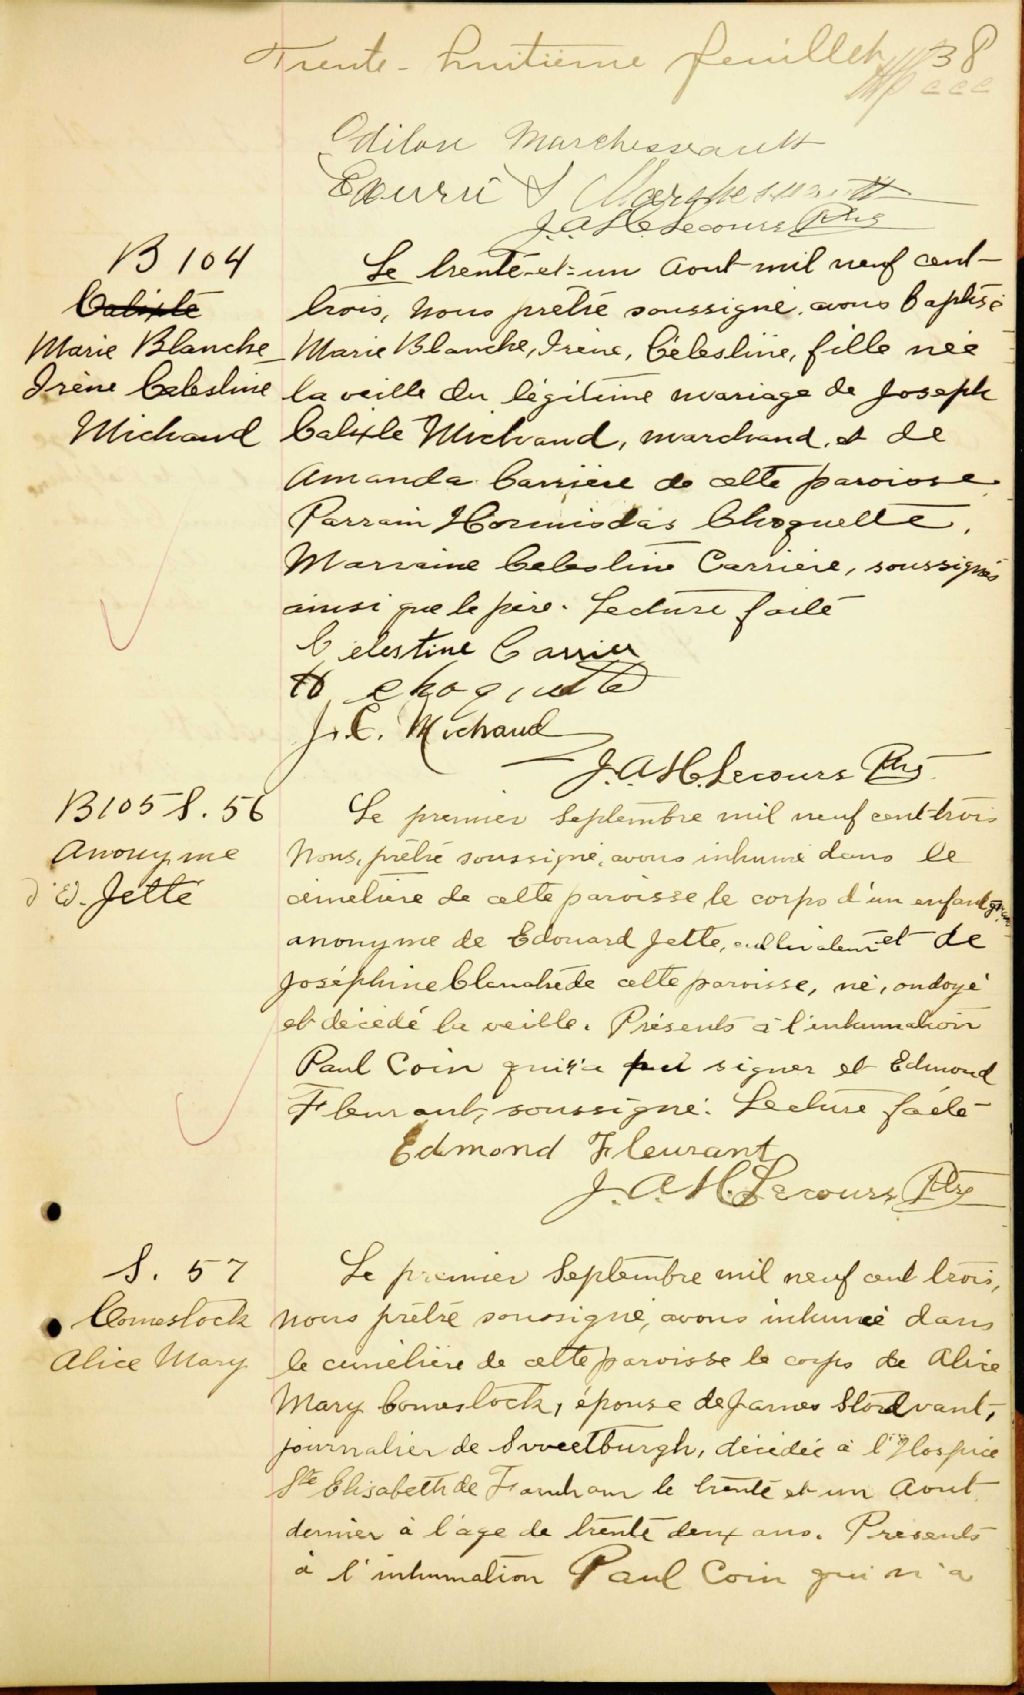 Trente-huitième feuillet 38
Odilon Marchesseault
J. A. H. Lecours Ptre
B 104
Calixte
Marie Blanche
Irène Celestine
Michaud
Le trente-et-un Aout mil neuf cent-
trois, nous prêtre soussigné, avons baptisé
Marie Blanche, Irène, Célestine, fille née
la veille du légitime mariage de Joseph
Calixte Michaud, marchand, et de
Amanda Carrière de cette paroisse.
Parrain Hormisdas Choquette,
Marraine Celestine Carriere, soussignés
ainsi que le père. Lecture faite
Celestine Carrier
H Choquette
J. C. Michaud
J. A. H. Lecours Ptre
B 105 S. 56
Anonyme
d'Ed. Jetté
Le premier Septembre mil neuf cent-trois
Nous, prêtre soussigné, avons inhumé dans le
cimetière de cette paroisse le corps d'un enfant
anonyme de Edouard Jette, cultivateur et de
Joséphine de cette paroisse, né, ondoyé
et décédé la veille. Présents à l'inhumation
Paul Coin qui n'a pu signer et Edmond
Fleurant, soussigné. Lecture faite
Edmond Fleurant
J. A. H. Lecours, Ptre
S. 57
Comestock
Alice Mary
Le premier Septembre mil neuf cent trois,
nous prêtre soussigné, avons inhumé dans
le cimetière de cette paroisse le corps de Alice
Mary Comestock, épouse de James
journalier de Sweetburgh, décédée à l'Hospice
Ste Elisabeth de Farnham le trente et un Aout
dernier à l'age de trente deux ans. Présents
à l'inhumation Paul Coin qui n'a